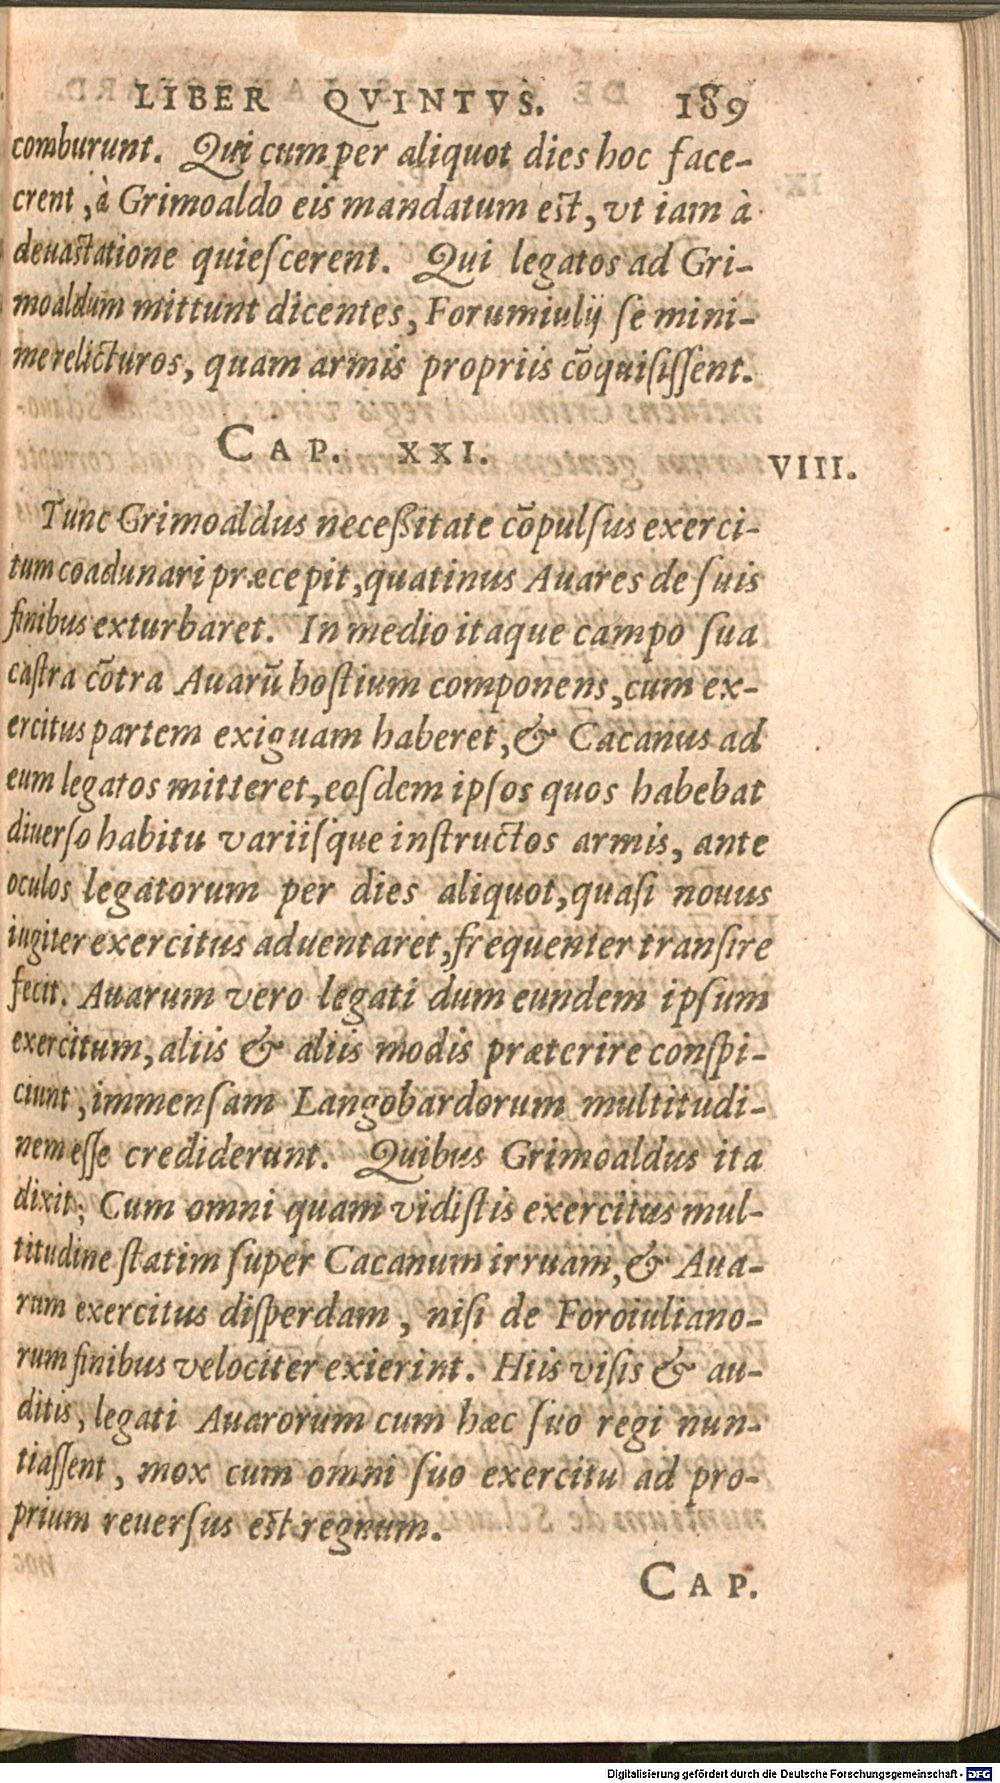 LIBER QVINTVS. 189
comburunt. Qui cum per aliquot dies hoc face-
crent, à Grimoaldo eis mandatum est, vt iam à
deuastatione quieſcerent. Qui legatos ad Gri-
moaldum mittunt dicentes, Forumiulij ſe mini-
me relicturos, quam armis propriis cōquiſiſſent.
CAP. XXI.
VIII.
Tunc Grimoaldus neceßitate cōpulſus exerci-
tum coadunari præcepit, quatinus Auares de ſuis
finibus exturbaret. In medio itaque campo ſua
caſtra cōtra Auarū hoſtium componens, cum ex-
ercitus partem exiguam haberet, & Cacanus ad
eum legatos mitteret, eoſdem ipſos quos habebat
diuerſo habitu variiſque inſtructos armis, ante
oculos legatorum per dies aliquot, quaſi nouus
iugiter exercitus aduentaret, frequenter tranſire
fecit. Auarum vero legati dum eundem ipſum
exercitum, aliis & aliis modis præterire conſpi-
ciunt, immenſam Langobardorum multitudi-
nem eſſe crediderunt. Quibus Grimoaldus ita
dixit; Cum omni quam vidiſtis exercitus mul-
titudine ſtatim ſuper Cacanum irruam, & Aua-
rum exercitus diſperdam, niſi de Foroiuliano-
rum finibus velociter exierint. Hiis viſis & au-
ditis, legati Auarorum cum hæc ſuo regi nun-
tiaſſent, mox cum omni ſuo exercitu ad pro-
prium reuerſus est regnum.
CAP.
Digitalisierung gefördert durch die Deutsche Forschungsgemeinschaft - DFG